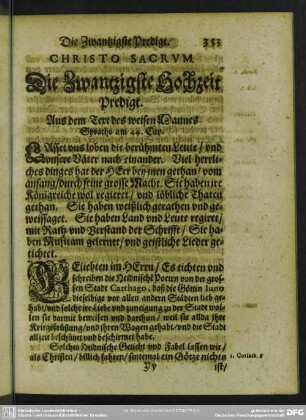 Die Zwantzigste Predigt. 353
CHRISTO SACRVM.
Die Zwantzigste Hochzeit
Predigt.
Aus dem Text des weisen Mannes
Syrachs am 44. Cap.
LAsset vns loben die berühmten Leute / vnd
vnsere Väter nach einander. Viel herrli-
ches dinges hat der HErr bey jnen gethan / vom
anfang / durch seine grosse Macht. Sie haben jre
Königreiche wol regieret / vnd löbliche Thaten
gethan. Sie haben weißlich gerathen vnd ge-
weissaget. Sie haben Land vnd Leute regiret /
mit Rath vnd Verstand der Schrifft / Sie ha-
ben Musicam gelernet / vnd geistliche Lieder ge-
tichtet.
GEliebten im HErrn / Es tichten vnd
schreiben die Heidnische Poeten von der gros-
sen Stadt Carthago, daß die Göttin Iuno
dieselbige vor allen andern Städten lieb ge-
habt / vnd solche jre Liebe vnd zuneigung zu der Stadt wol-
len sie darmit beweisen vnd darthun / weil sie allda jhre
Kriegsrüstung / vnd jhren Wagen gehabt / vnd die Stadt
allzeit beschützet vnd beschirmet habe.
Solches Heidnische Geticht vnd Fabel lassen wir /
als Christen / billich fahren / sintemal ein Götze nichts
1. Corinth. 8
Yy
ist /